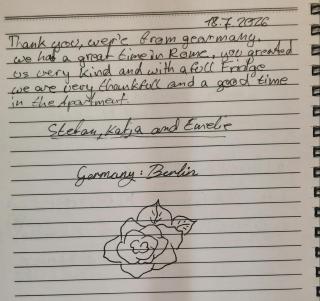 18.7.2026
Thank you, we're from gearmany.
we had a great time in Rome, you greated
us very kind and with a full Fridge
we are very thankfull and a good time
in the Apartment.
Stefan, Katja and Emelie
Germany: Berlin